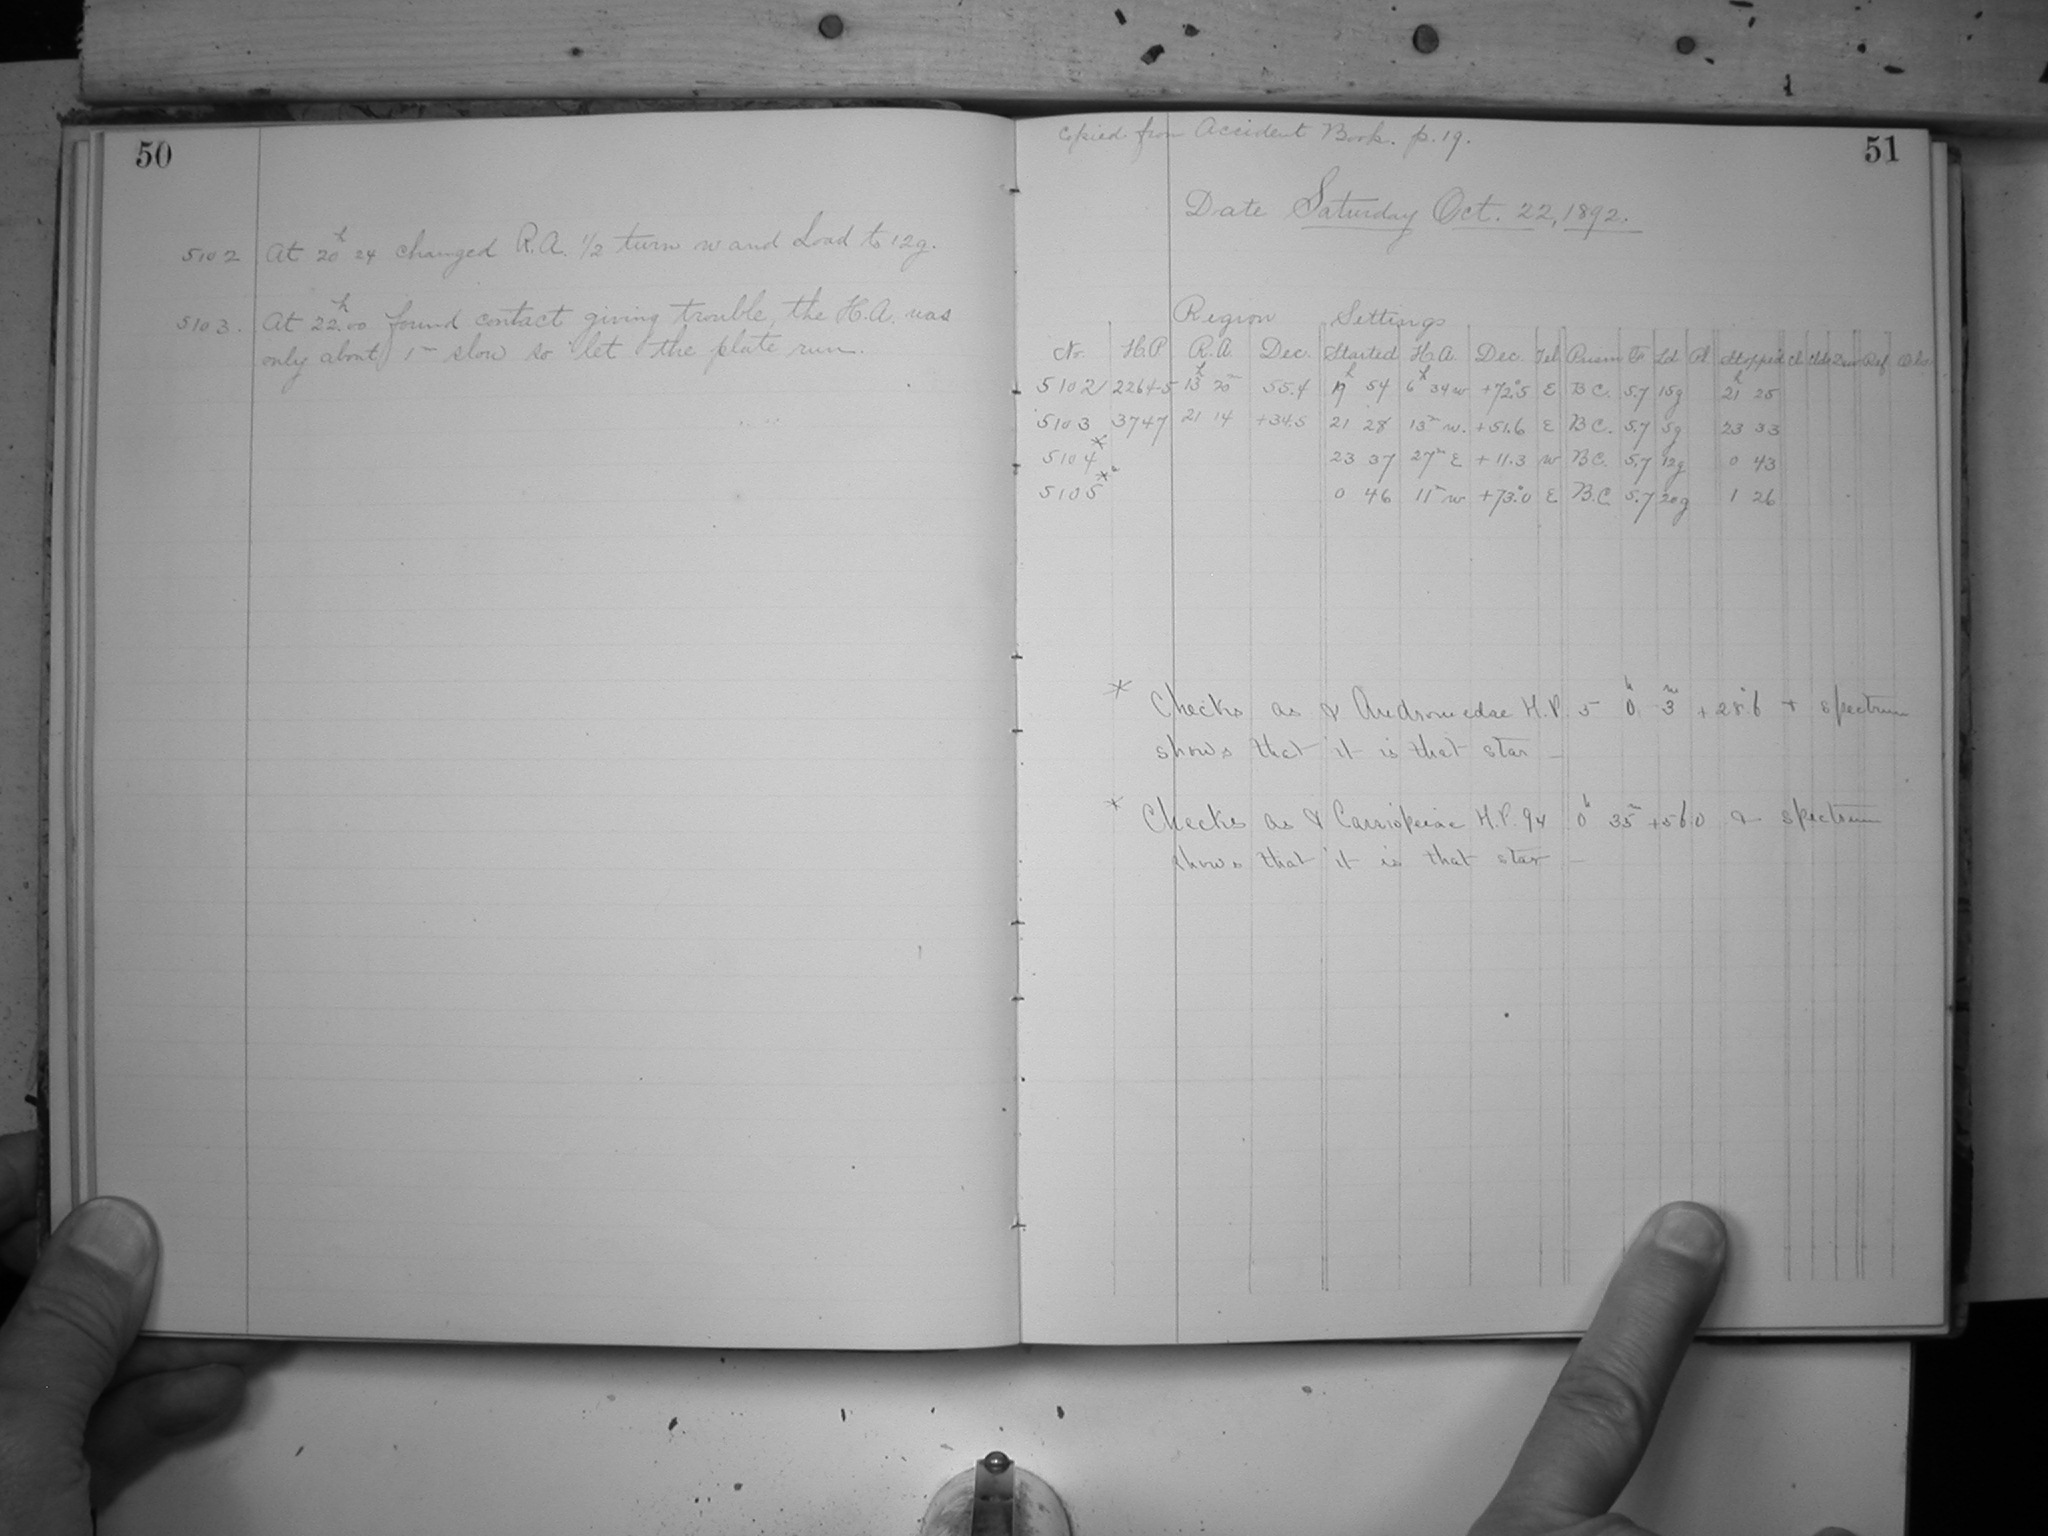 50
5102 At 20h 24 changed R.A. 1/2 turn w and Load to 12g.
5103. At 22h.00 found contact giving trouble, the H.A. was
only about 1m slow so let the plate run.
Copied from Accident Book. p. 19.
51
Date Saturday Oct. 22, 1892.
Region Settings
No. H.P. R.A. Dec. Started H.A. Dec. Tel Prism Fr Ld Pl Stopped Cl Clds Ref Obs
5102 2264-5 13h 20m 55.4 19h 54 6h 34 w +72.5 E B.C. 5.7 15g 21h 25
5103 3747 21 14 +34.5 21 28 13m w. +51.6 E B.C. 5.7 5g 23 33
5104* 23 37 27m E +11.3 w B.C. 5.7 12g 0 43
5105* 0 46 11m w +73.0 E B.C. 5.7 20g 1 26
* Checks as α Andromedae H.P. 5 0h 3m +28.6 + spectrum
shows that it is that star —
* Checks as α Cassiopeiae H.P. 94 0h 35m +56.0 & spectrum
shows that it is that star —